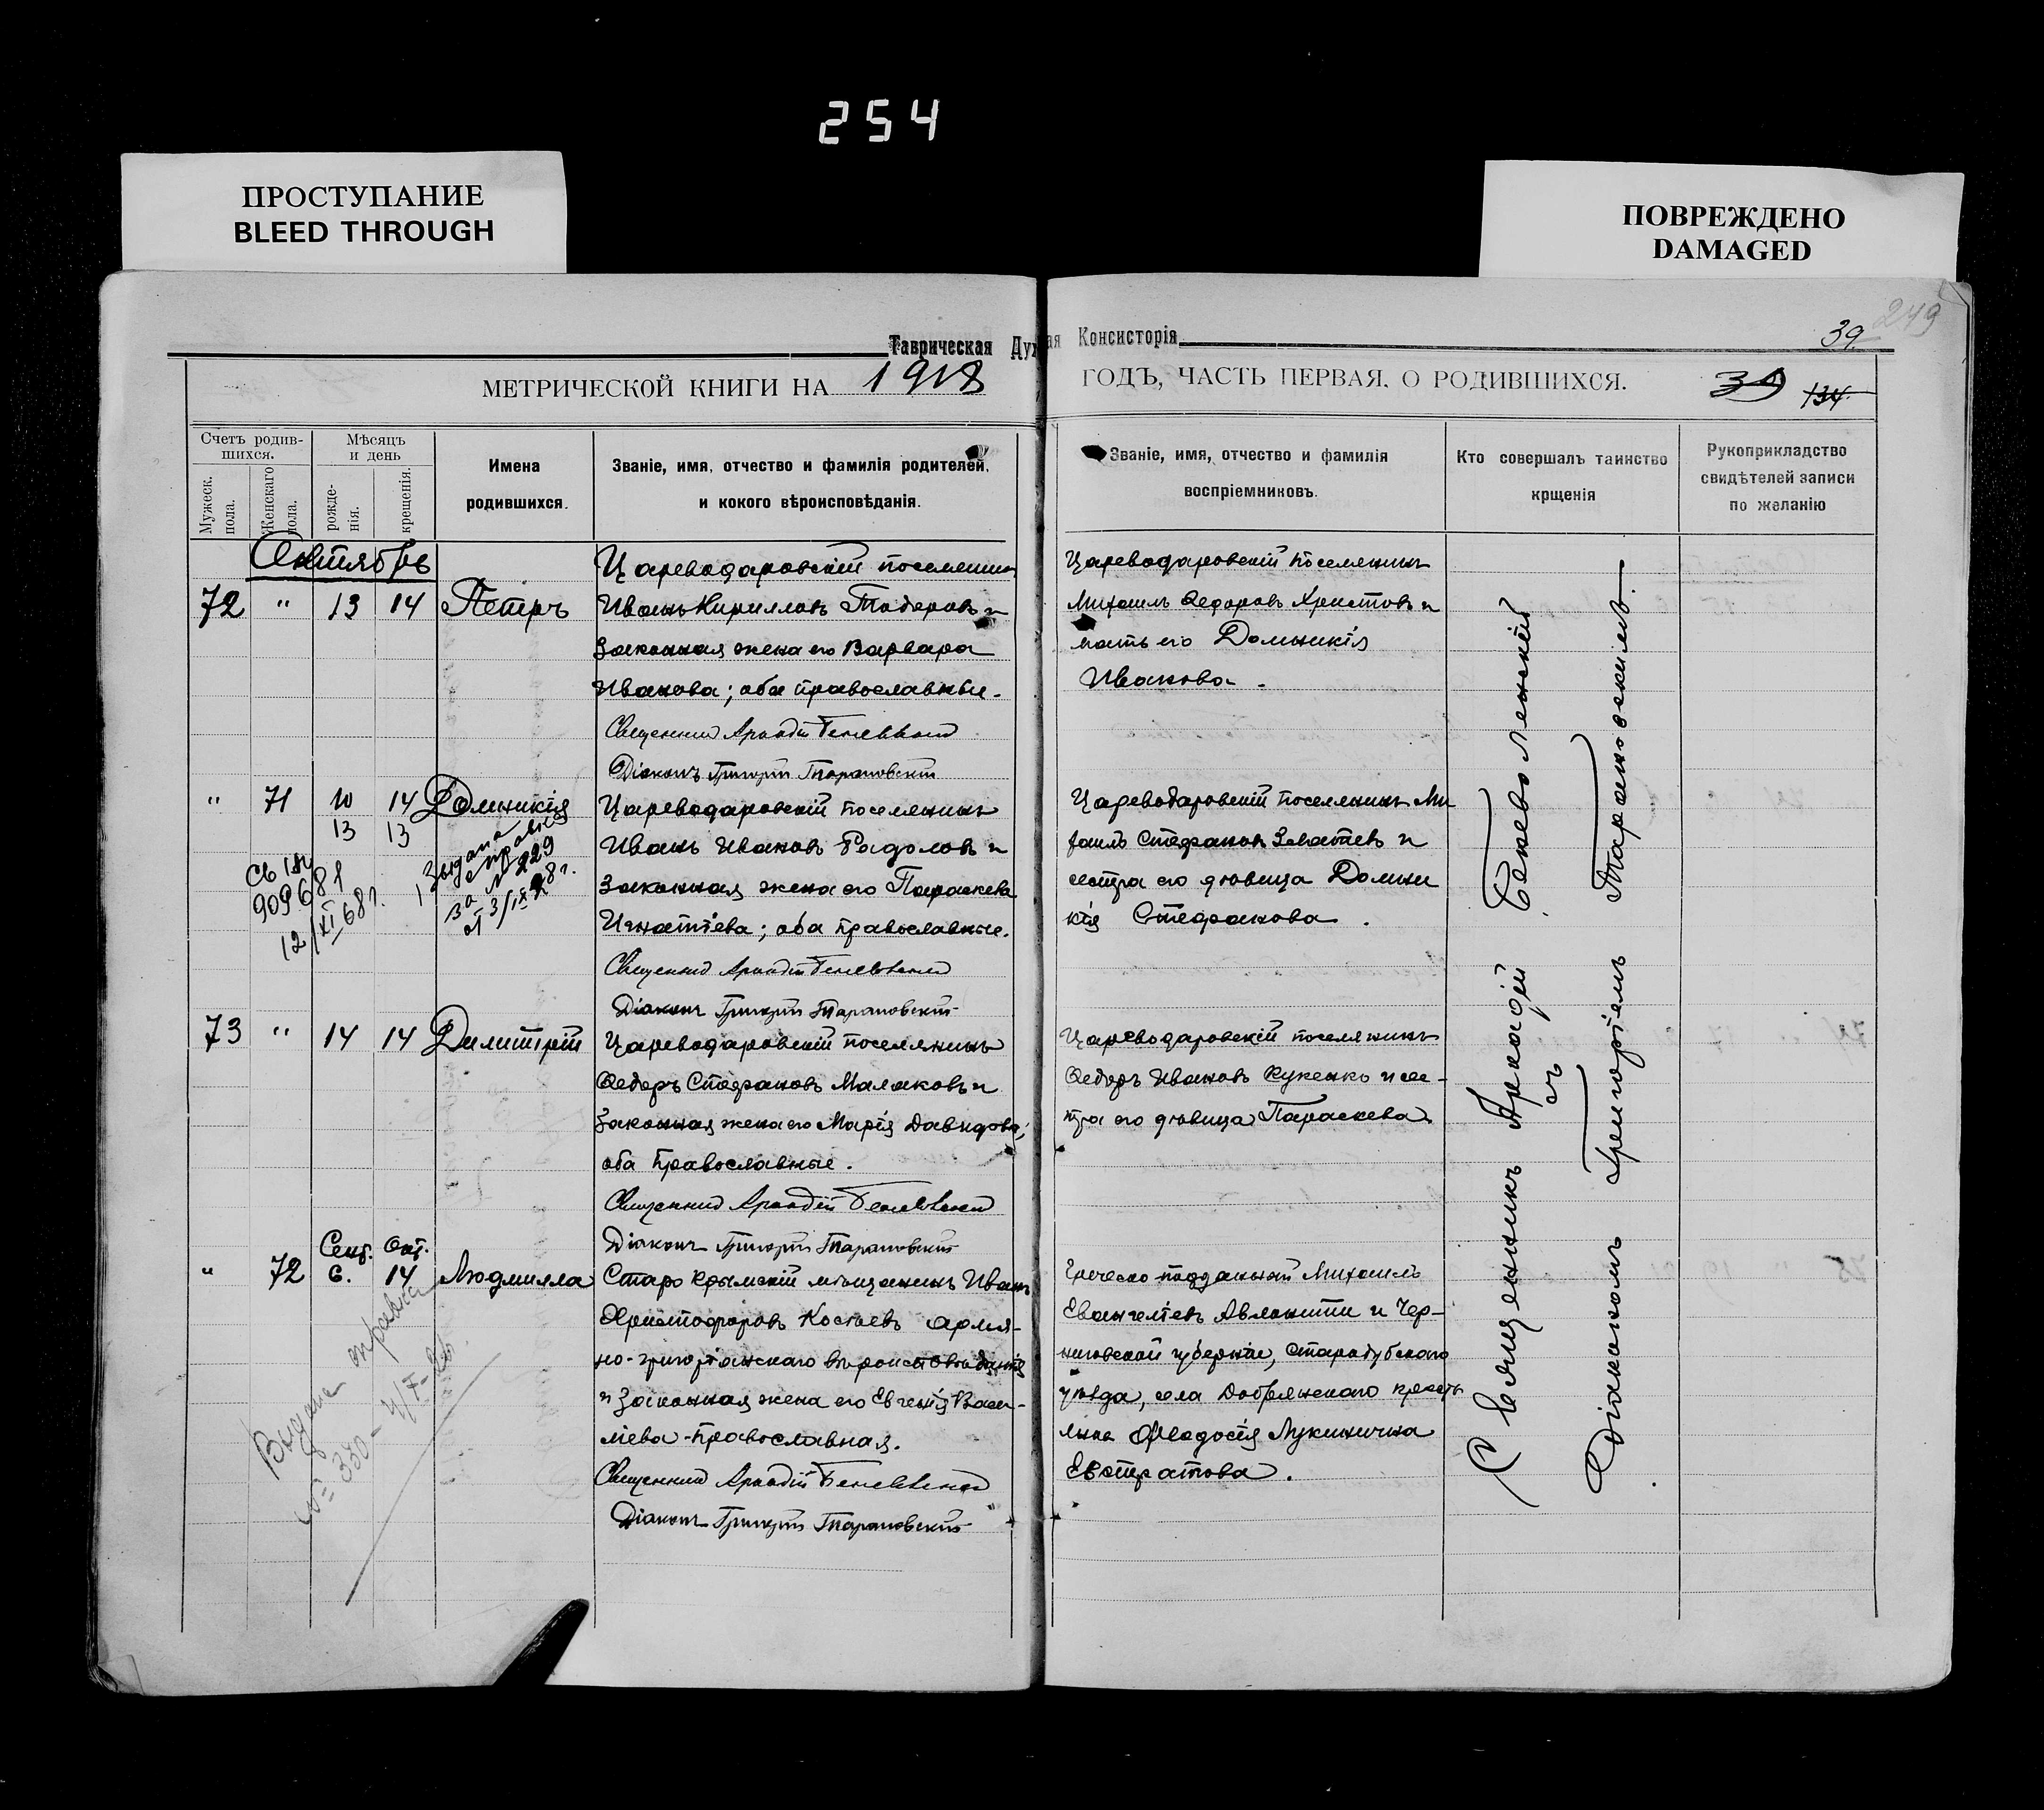 254
ПРОСТУПАНИЕ
BLEED THROUGH
ПОВРЕЖДЕНО
DAMAGED
249
Таврическая Дух ая Консисторія
39
МЕТРИЧЕСКОЙ КНИГИ НА 1918 ГОДЪ, ЧАСТЬ ПЕРВАЯ, О РОДИВШИХСЯ.
39 134
Счетъ родив-
шихся.
Мужеск. пола.
Женскаго пола.
Мѣсяцъ
и день
рожде-
нія.
крещенія.
Имена
родившихся.
Званіе, имя, отчество и фамилія родителей,
и кокого вѣроисповѣданія.
Званіе, имя, отчество и фамилія
воспріемниковъ.
Кто совершалъ таинство
крщенія
Рукоприкладство
свидѣтелей записи
по желанію
Октябрь
72 " 13 14 Петръ
Цареводаровскій поселянинъ
Иванъ Кирилловъ Тодоровъ и
Законная жена его Варвара
Иванова; оба православные.
Священникъ Аркадій
Діаконъ Григорій Тарановскій
Цареводаровскій поселянинъ
Михаилъ Ѳедоровъ Христовъ и
мать его Домникія
Иванова.
" 71 10 14 Домникія
13 13
Цареводаровскій поселянинъ
Иванъ Ивановъ Радоловъ и
Законная жена его Параскева
Игнатіева; оба православные.
Священникъ Аркадій
Діаконъ Григорій Тарановскій
Цареводаровскій поселянинъ Ми
хаилъ Стефановъ Золотаев и
сестра его дѣвица Домни
кія Стефанова.
909681
12/XI 68 г.
Выдана
справка
№ 229
73 " 14 14 Димитрій
Цареводаровскій поселянинъ
Ѳедоръ Стефановъ Малаковъ и
Законная жена его Марія Давидова;
оба православные.
Священникъ Аркадій
Діаконъ Григорій Тарановскій
Цареводаровскій поселянинъ
Ѳедоръ Ивановъ Кукенко и се-
тра его дѣвица Параскева
Сент. Окт.
" 72 6. 14 Людмилла
Старо Крымскій мѣщанинъ Иванъ
Христофоровъ Костаевъ армя-
но-григоріанскаго вѣроисповѣданія
и Законная жена его Евгенія Васи-
ліева - православная.
Священникъ Аркадій
Діаконъ Григорій Тарановскій
Греческо подданный Михаилъ
Евангеліевъ Авлонити и Чер-
ниговской губерніи, Стародубскаго
уѣзда, села Добрянскаго кресть
янка Ѳеодосія Лукинична
Евстратова.
Выдана справка
№ 330
Священникъ Аркадій
съ
Діакономъ Григоріемъ Тарановскимъ.